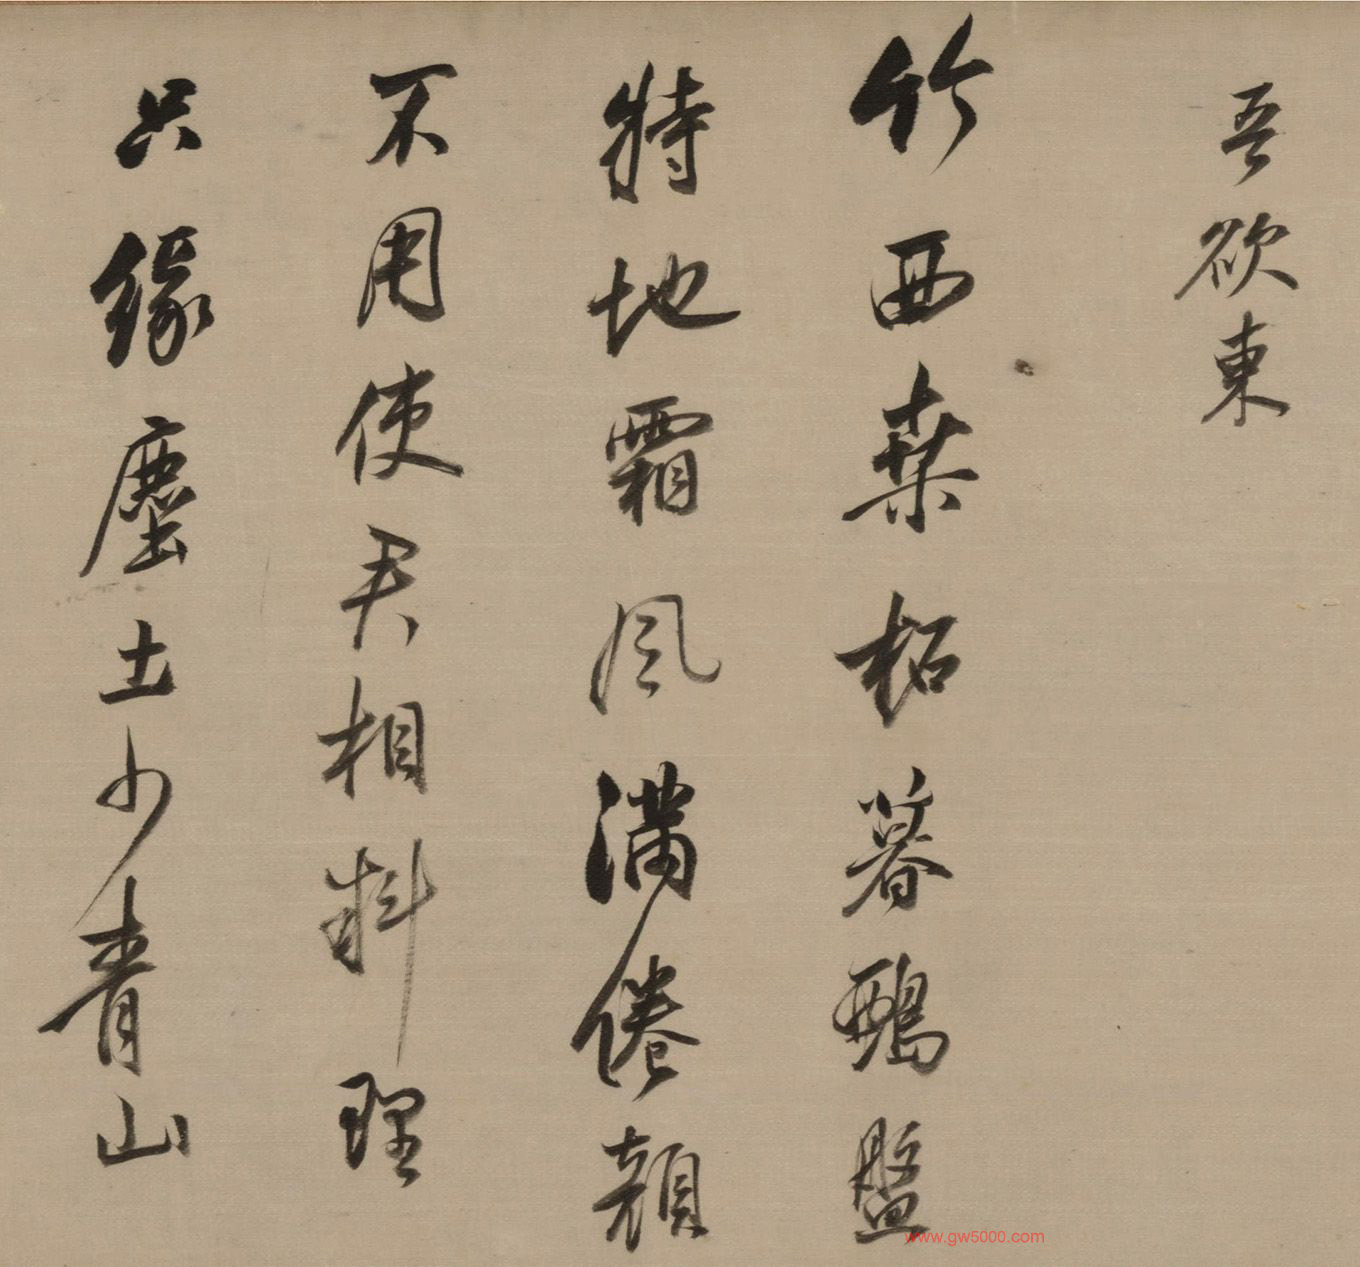 吾欲東
竹西桒柘暮鵶盤
特地霜風滿倦顏
不用使君相料理
只緣塵土少青山
www.gw5000.com